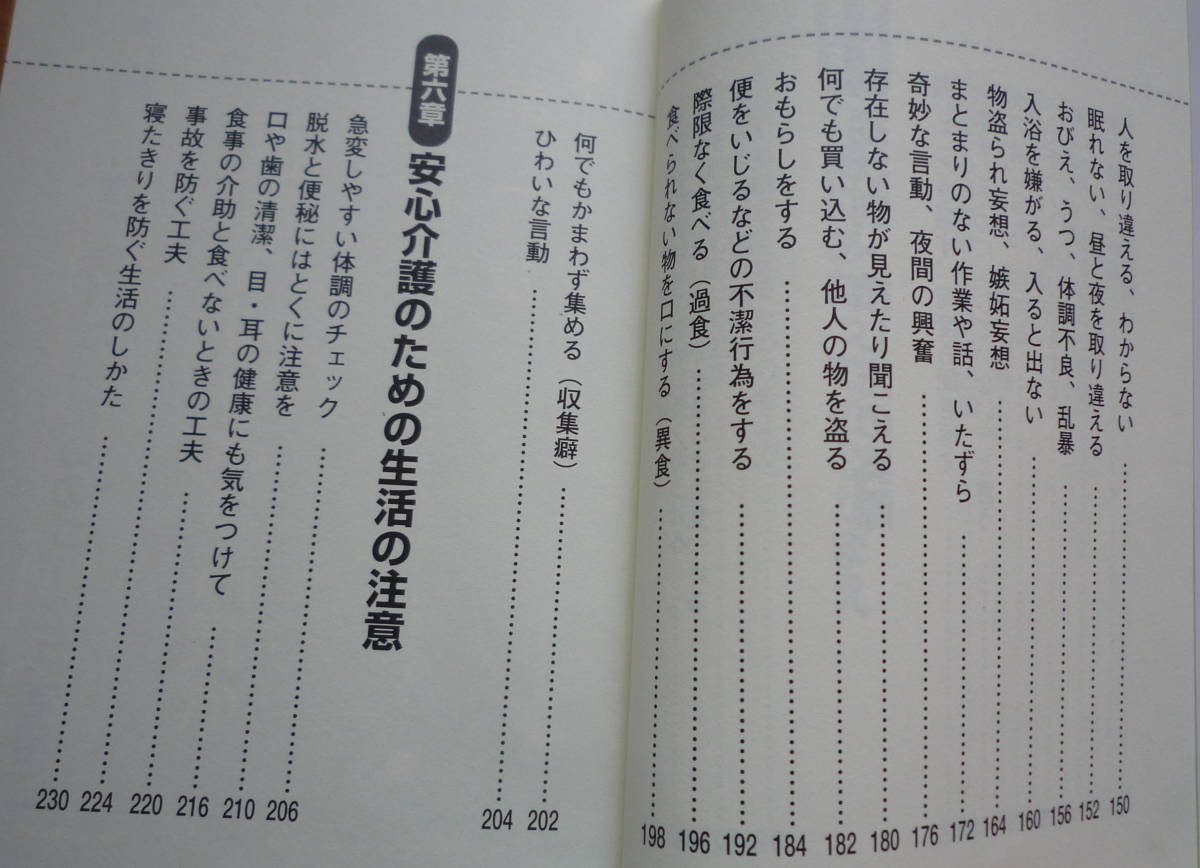 人を取り違える、わからない……150
眠れない、昼と夜を取り違える……152
おびえ、うつ、体調不良、乱暴……156
入浴を嫌がる、入ると出ない……160
物盗られ妄想、嫉妬妄想……164
まとまりのない作業や話、いたずら……172
奇妙な言動、夜間の興奮……176
存在しない物が見えたり聞こえる……180
何でも買い込む、他人の物を盗る……182
おもらしをする……184
便をいじるなどの不潔行為をする……192
際限なく食べる（過食）……196
食べられない物を口にする（異食）……198
何でもかまわず集める（収集癖）……202
ひわいな言動……204
第六章 安心介護のための生活の注意
急変しやすい体調のチェック……206
脱水と便秘にはとくに注意を……210
口や歯の清潔、目・耳の健康にも気をつけて……216
食事の介助と食べないときの工夫……220
事故を防ぐ工夫……224
寝たきりを防ぐ生活のしかた……230